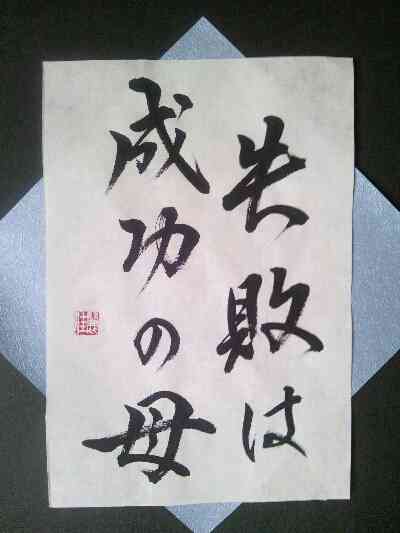 失敗は
成功の母